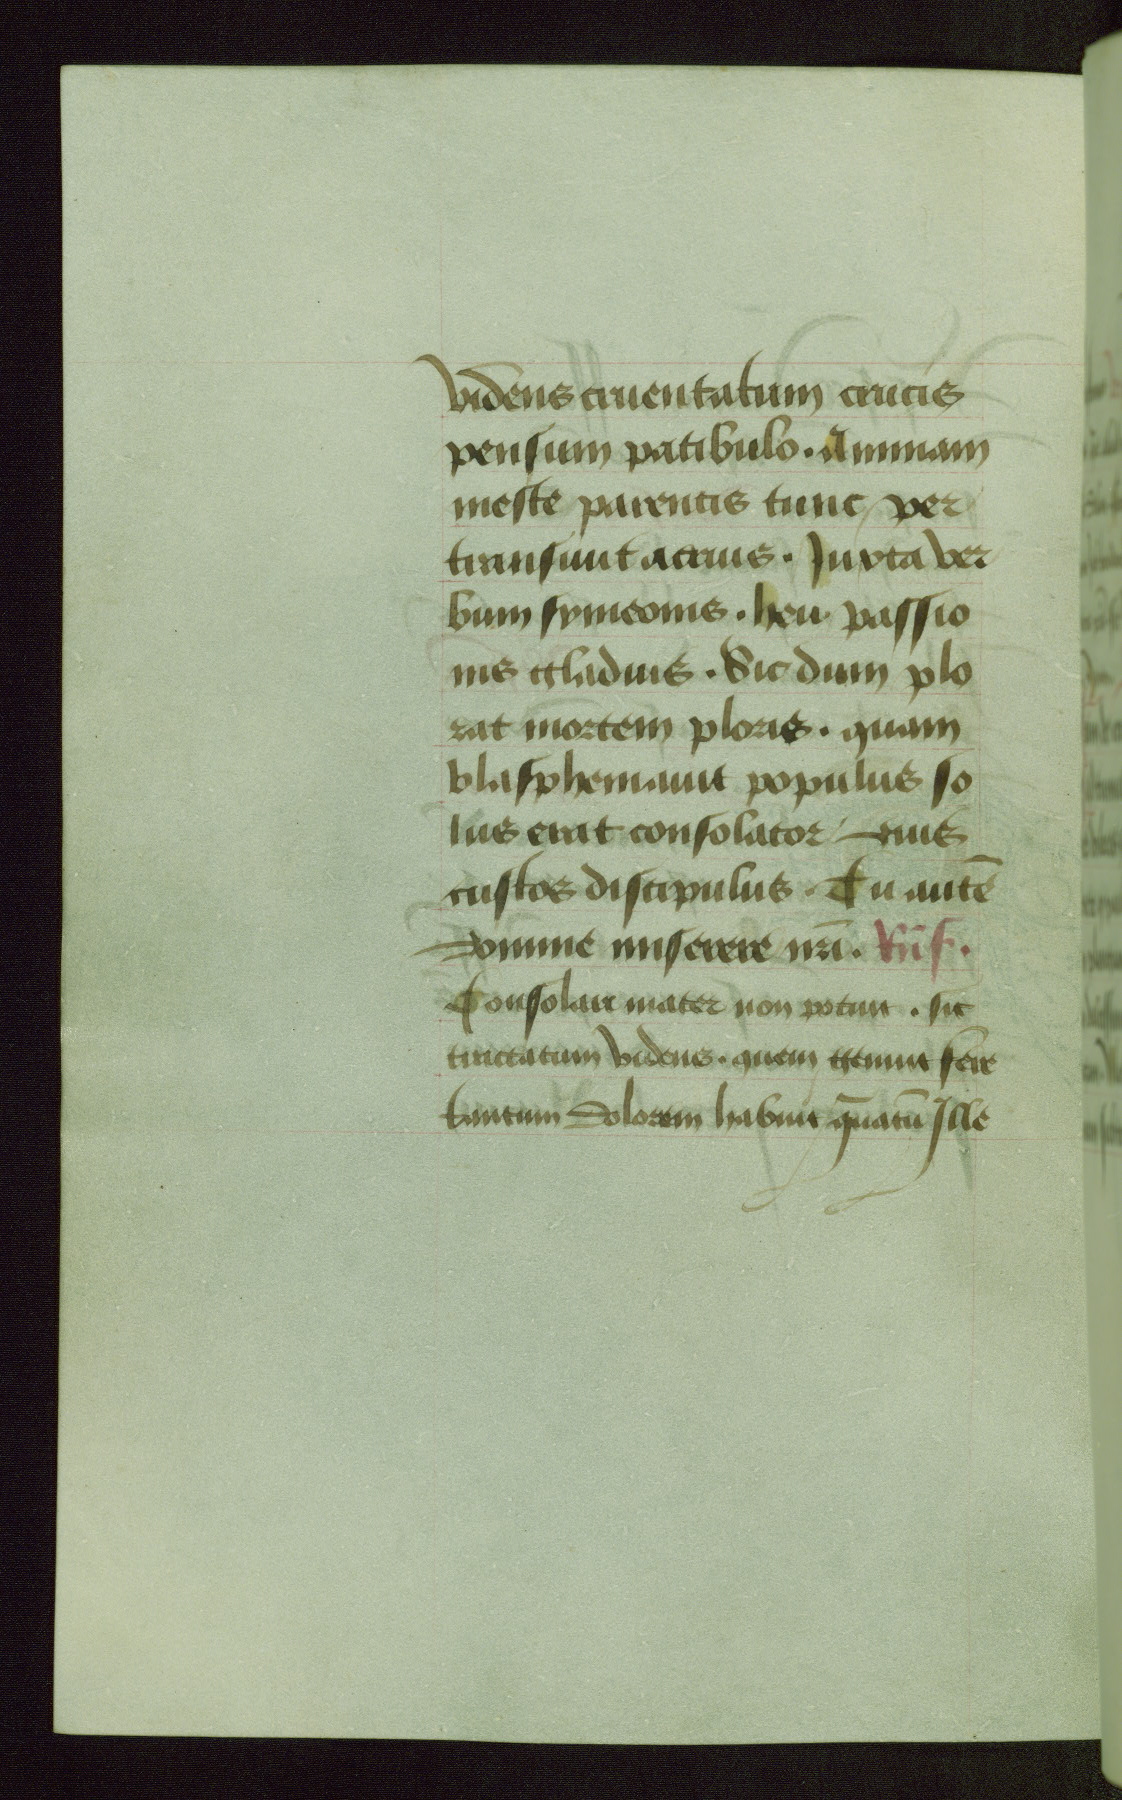 videns cruentatum crucis
pensum patibulo. Animam
meste parentis tunc per
transiuit acrius. Juxta ver
bum symeonis. heu passio
nis gladius. Sic dum plo
rat mortem prolis. quam
blasphemauit populus so
lus erat consolator eius
custos discipulus. Tu autē
domine miserere nr̄i. Rūs.
Consolari mater non potuit. sic
tractatum videns. quem genuit fere
tantum dolorem habuit q̄natū Ille